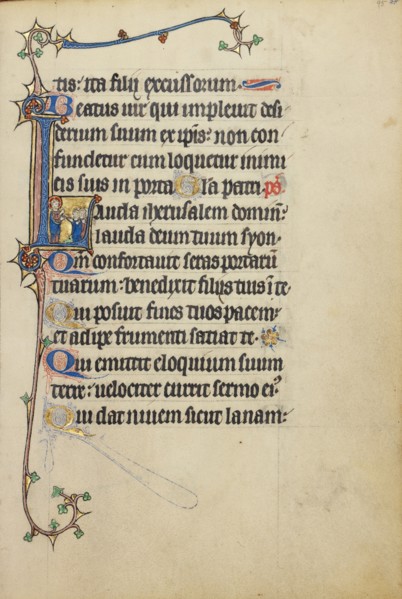 tis: ita filij excussorum.
Beatus uir qui impleuit desi
derium suum ex ipis: non con
fundetur cum loquetur inimi
cis suis in porta Gla patri. ps.
Lauda iherusalem dominū:
lauda deum tuum syon.
Qm̄ confortauit seras portarū
tuarum: benedixit filijs tuis ī te
Qui posuit fines tuos pacem:
et adipe frumenti satiat te.
Qui emittit eloquium suum
terre: uelociter currit sermo ei.
Qui dat niuem sicut lanam: